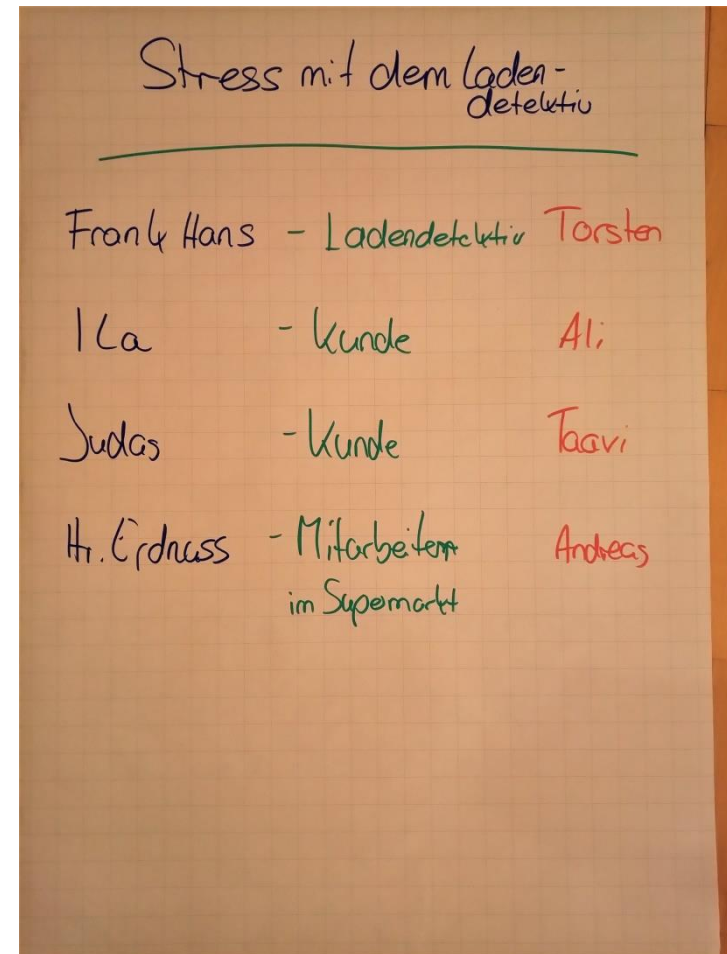 Stress mit dem Laden-
detektiv
Frank Hans - Ladendetektiv Torsten
Ila - Kunde Ali
Judas - Kunde Taavi
Hr. Erdnuss - Mitarbeiter
Andreas
im Supermarkt